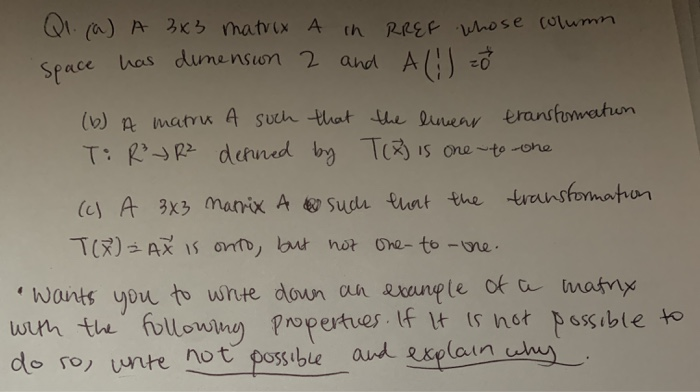 Q1. (a) A 3x3 matrix A in RREF whose column
space has dimension 2 and A(1 1 1) = 0⃗
(b) A matrix A such that the linear transformation
T: R³→R² defined by T(x⃗) is one-to-one
(c) A 3x3 matrix A such that the transformation
T(x⃗) = Ax⃗ is onto, but not one-to-one.
• Wants you to write down an example of a matrix
with the following properties. If it is not possible to
do so, write not possible and explain why.